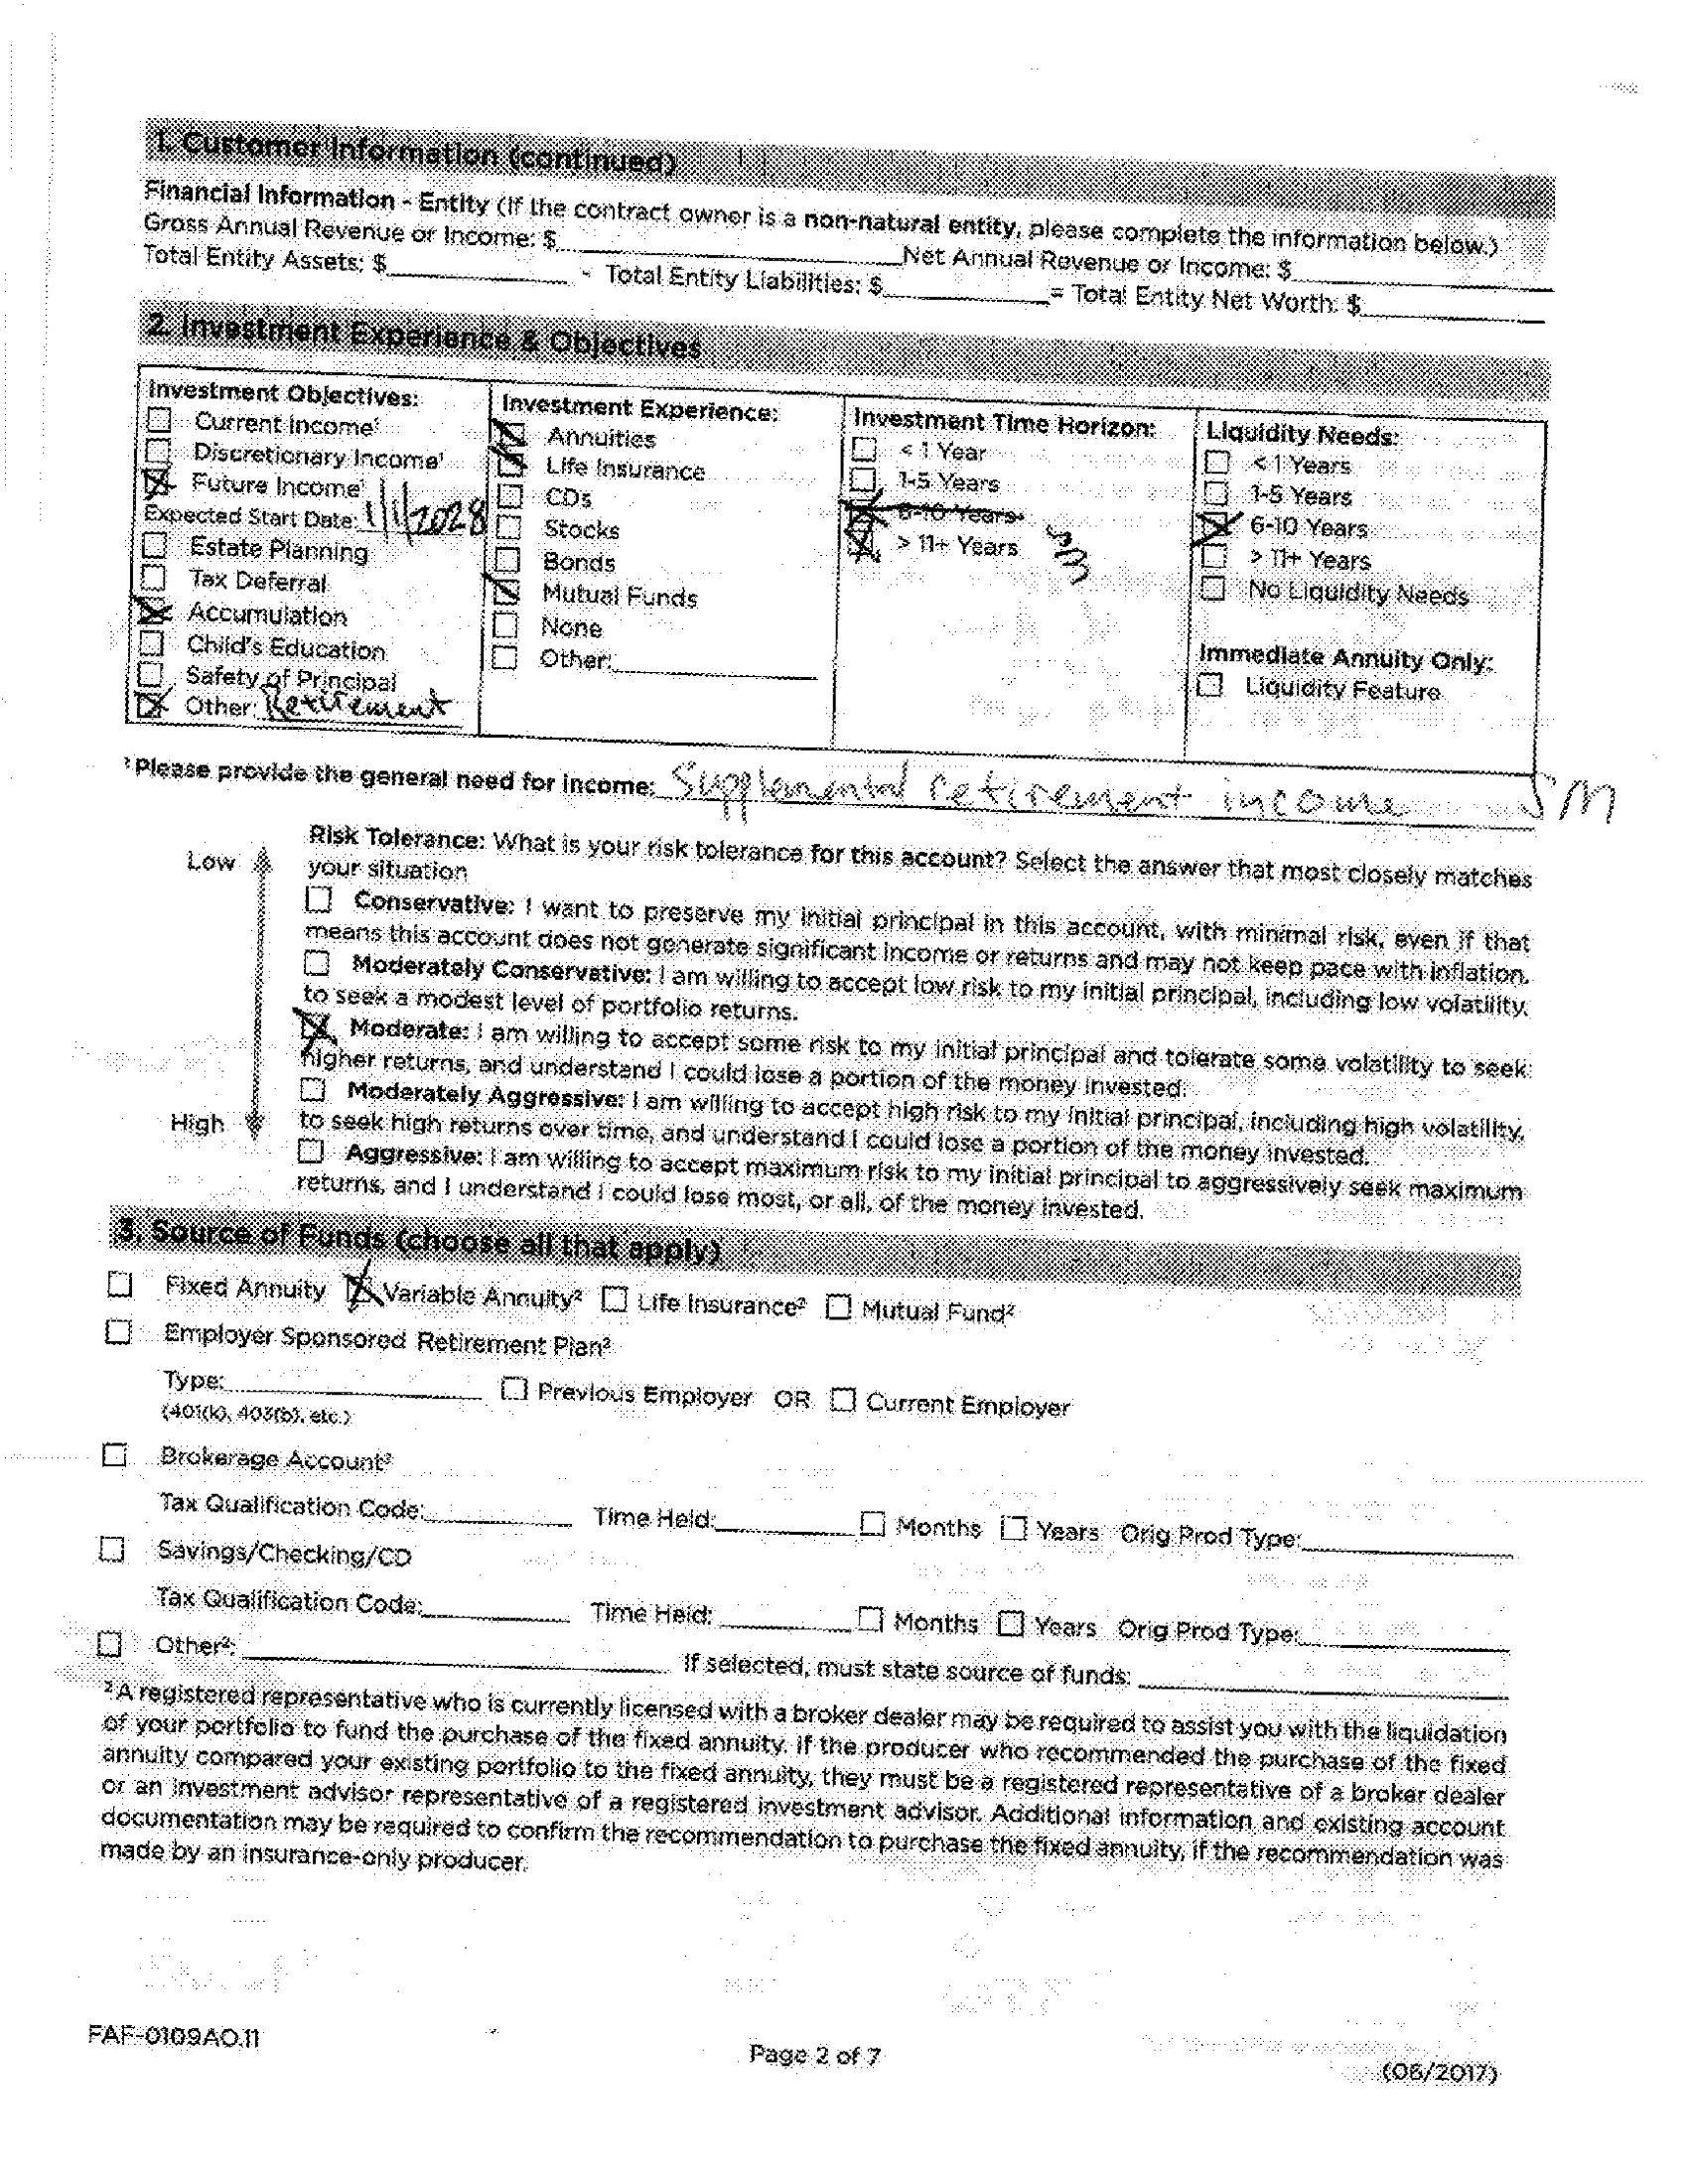 1. Customer Information (continued)
Financial Information - Entity (If the contract owner is a non-natural entity, please complete the information below.)
Gross Annual Revenue or Income: $ Net Annual Revenue or Income: $
Total Entity Assets: $ - Total Entity Liabilities: $ = Total Entity Net Worth: $
2. Investment Experience & Objectives
Investment Objectives:
Current Income¹
Discretionary Income¹
Future Income¹
Expected Start Date: 1/1/2028
Estate Planning
Tax Deferral
Accumulation
Child's Education
Safety of Principal
Other: Retirement
Investment Experience:
Annuities
Life Insurance
CDs
Stocks
Bonds
Mutual Funds
None
Other:
Investment Time Horizon:
< 1 Year
1-5 Years
6-10 Years
> 11+ Years
Liquidity Needs:
< 1 Years
1-5 Years
6-10 Years
> 11+ Years
No Liquidity Needs
Immediate Annuity Only:
Liquidity Feature
¹ Please provide the general need for income: Supplemental retirement income SM
Low
High
Risk Tolerance: What is your risk tolerance for this account? Select the answer that most closely matches
your situation
Conservative: I want to preserve my initial principal in this account, with minimal risk, even if that
means this account does not generate significant income or returns and may not keep pace with inflation.
Moderately Conservative: I am willing to accept low risk to my initial principal, including low volatility,
to seek a modest level of portfolio returns.
Moderate: I am willing to accept some risk to my initial principal and tolerate some volatility to seek
higher returns, and understand I could lose a portion of the money invested.
Moderately Aggressive: I am willing to accept high risk to my initial principal, including high volatility,
to seek high returns over time, and understand I could lose a portion of the money invested.
Aggressive: I am willing to accept maximum risk to my initial principal to aggressively seek maximum
returns, and I understand I could lose most, or all, of the money invested.
3. Source of Funds (choose all that apply)
Fixed Annuity Variable Annuity² Life Insurance² Mutual Fund²
Employer Sponsored Retirement Plan²
Type: Previous Employer OR Current Employer
(401(k), 403(b), etc.)
Brokerage Account²
Tax Qualification Code: Time Held: Months Years Orig Prod Type:
Savings/Checking/CD
Tax Qualification Code: Time Held: Months Years Orig Prod Type:
Other²: If selected, must state source of funds:
² A registered representative who is currently licensed with a broker dealer may be required to assist you with the liquidation
of your portfolio to fund the purchase of the fixed annuity. If the producer who recommended the purchase of the fixed
annuity compared your existing portfolio to the fixed annuity, they must be a registered representative of a broker dealer
or an investment advisor representative of a registered investment advisor. Additional information and existing account
documentation may be required to confirm the recommendation to purchase the fixed annuity, if the recommendation was
made by an insurance-only producer.
FAF-0109AO.11
Page 2 of 7
(06/2017)